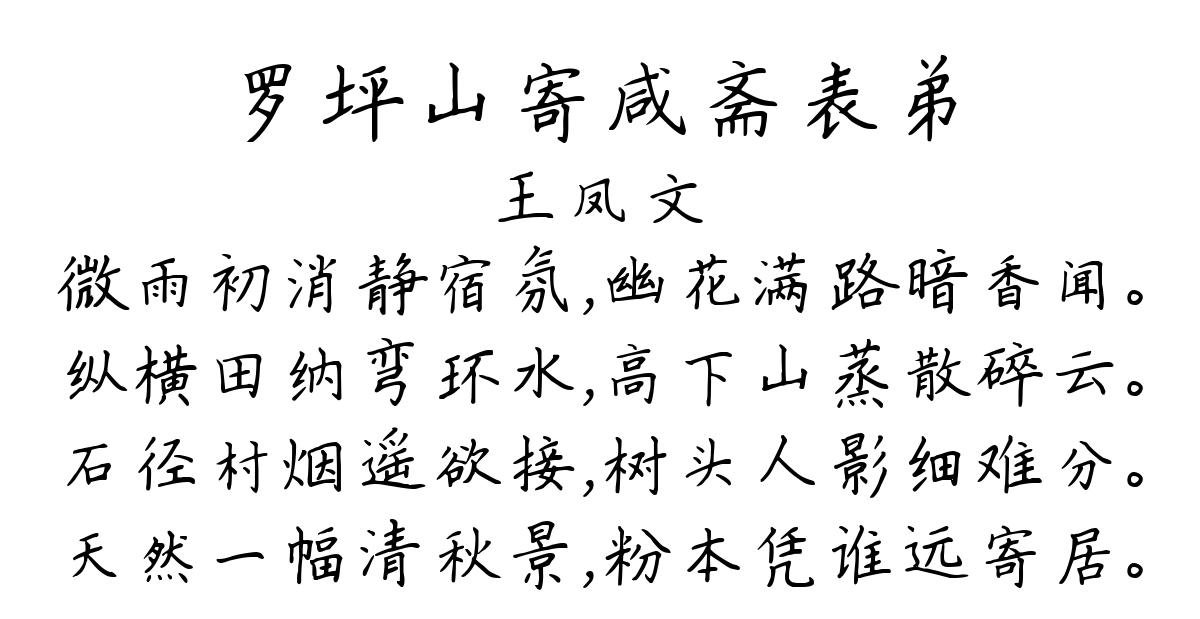 罗坪山寄咸斋表弟
王凤文
微雨初消静宿氛,幽花满路暗香闻。
纵横田纳弯环水,高下山蒸散碎云。
石径村烟遥欲接,树头人影细难分。
天然一幅清秋景,粉本凭谁远寄居。